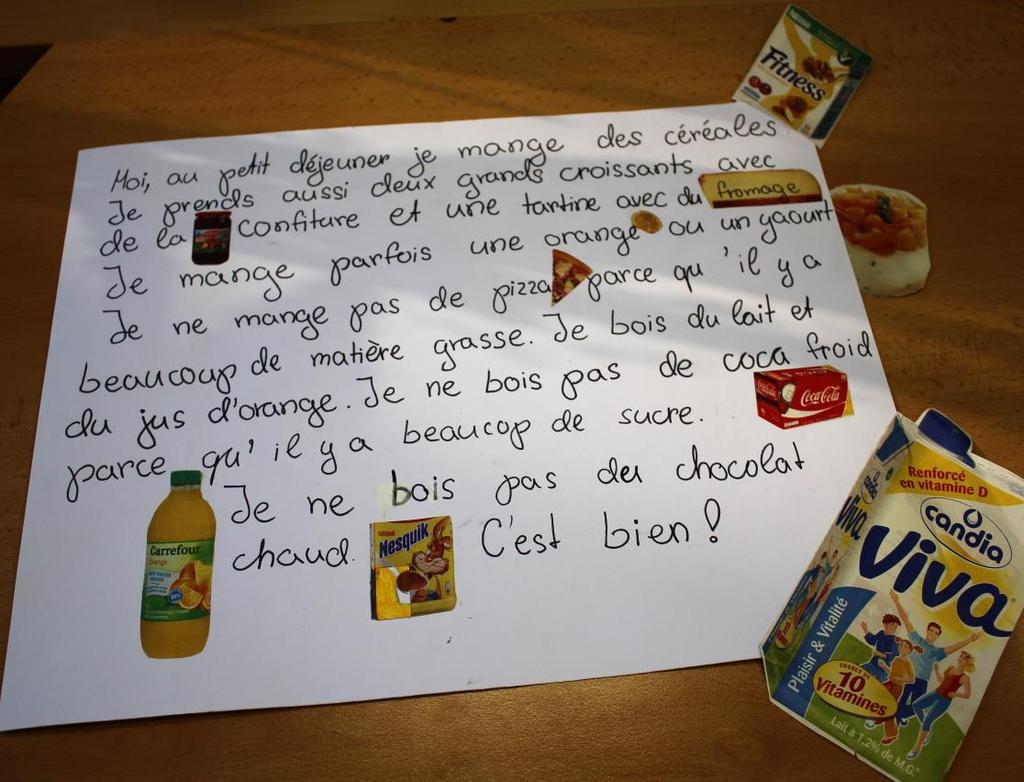 NESTLE
Fitness
Moi, au petit déjeuner je mange des céréales
Je prends aussi deux grands croissants avec
de la confiture et une tartine avec du fromage
Je mange parfois une orange ou un yaourt
Je ne mange pas de pizza parce qu'il y a
beaucoup de matière grasse. Je bois du lait et
du jus d'orange. Je ne bois pas de coca froid
parce qu'il y a beaucoup de sucre.
Coca-Cola
Je ne bois pas du chocolat
chaud. C'est bien!
Nesquik
Carrefour
Orange
Renforcé
en vitamine D
candia
Viva
Plaisir & Vitalité
SOURCE DE
10
Vitamines
Lait à 1,2% de M.G.*
candia
Viva